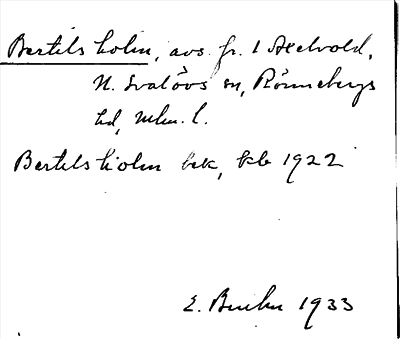 Bertilsholm, avs. fr. 1 Axelvold,
N. Svalövs sn, Rönnebergs
hd, Mlm. l.
Bertilsholm bek, kb 1922
E. 1933